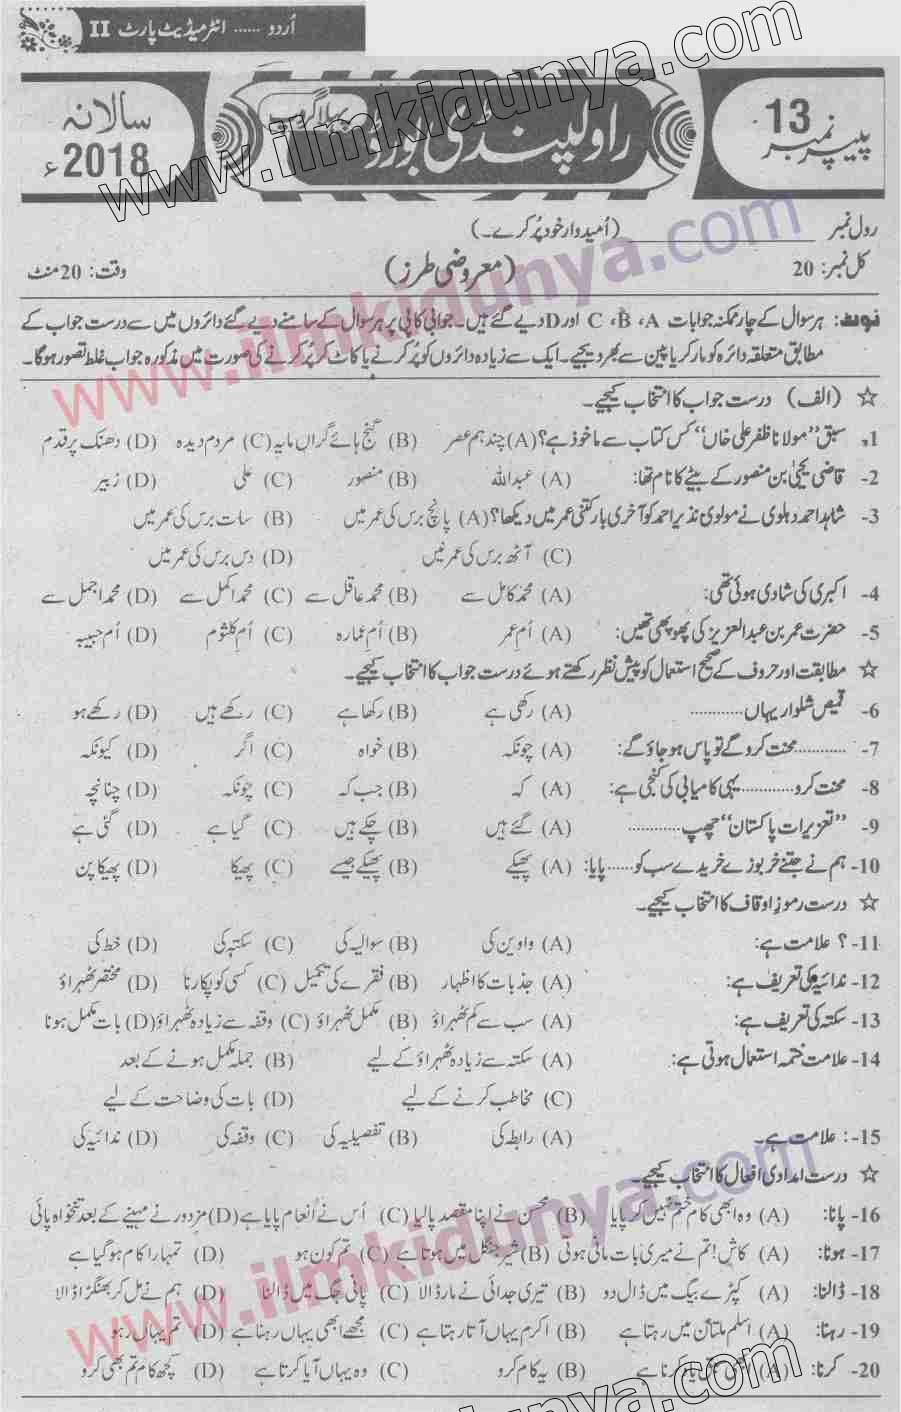 اُردو ...... انٹرمیڈیٹ پارٹ II
پیپر نمبر 13
راولپنڈی بورڈ
پہلا گروپ
سالانہ 2018ء
رول نمبر ____________ (اُمیدوار خود پُر کرے۔)
کل نمبر: 20 (معروضی طرز) وقت: 20 منٹ
نوٹ: ہر سوال کے چار ممکنہ جوابات A، B، C اور D دیے گئے ہیں۔ جوابی کاپی پر ہر سوال کے سامنے دیے گئے دائروں میں سے درست جواب کے
مطابق متعلقہ دائرہ کو مارکر یا پین سے بھر دیجیے۔ ایک سے زیادہ دائروں کو پُر کرنے یا کاٹ کر پُر کرنے کی صورت میں مذکورہ جواب غلط تصور ہوگا۔
☆ (الف) درست جواب کا انتخاب کیجیے۔
1۔ سبق ”مولانا ظفر علی خاں“ کس کتاب سے ماخوذ ہے؟ (A) چند ہم عصر (B) گنج ہائے گراں مایہ (C) مردم دیدہ (D) دھنک پر قدم
2- قاضی یحییٰ بن منصور کے بیٹے کا نام تھا: (A) عبداللہ (B) منصور (C) علی (D) زبیر
3- شاہد احمد دہلوی نے مولوی نذیر احمد کو آخری بار کتنی عمر میں دیکھا؟ (A) پانچ برس کی عمر میں (B) سات برس کی عمر میں
(C) آٹھ برس کی عمر میں (D) دس برس کی عمر میں
4- اکبری کی شادی ہوئی تھی: (A) محمد کامل سے (B) محمد عاقل سے (C) محمد اکمل سے (D) محمد اجمل سے
5- حضرت عمر بن عبدالعزیز کی پھوپھی تھیں: (A) اُم عمر (B) اُم عمارہ (C) اُم کلثوم (D) اُم حبیبہ
☆ مطابقت اور حروف کے صحیح استعمال کو پیش نظر رکھتے ہوئے درست جواب کا انتخاب کیجیے۔
6- قمیص شلوار یہاں ........... (A) رکھی ہے (B) رکھا ہے (C) رکھے ہیں (D) رکھے ہو
7- ........... محنت کرو گے تو پاس ہو جاؤ گے: (A) چونکہ (B) خواہ (C) اگر (D) کیونکہ
8- محنت کرو ........... یہی کامیابی کی کنجی ہے: (A) کہ (B) جب کہ (C) چونکہ (D) چنانچہ
9- ”تعزیرات پاکستان“ چھپ ........... (A) گئے ہیں (B) چکے ہیں (C) گیا ہے (D) گئی ہے
10- ہم نے جتنے خربوزے خریدے سب کو ...... پایا: (A) پھیکے (B) پھیکے جیسے (C) پھیکا (D) پھیکا پن
☆ درست رموز اوقاف کا انتخاب کیجیے۔
11- ؟ علامت ہے: (A) واوین کی (B) سوالیہ کی (C) سکتہ کی (D) خط کی
12- ندائیہ کی تعریف ہے: (A) جذبات کا اظہار (B) فقرے کی تکمیل (C) کسی کو پکارنا (D) مختصر ٹھہراؤ
13- سکتہ کی تعریف ہے: (A) سب سے کم ٹھہراؤ (B) مکمل ٹھہراؤ (C) وقفہ سے زیادہ ٹھہراؤ (D) بات مکمل ہونا
14- علامت ختمہ استعمال ہوتی ہے: (A) سکتہ سے زیادہ ٹھہراؤ کے لیے (B) جملہ مکمل ہونے کے بعد
(C) مخاطب کرنے کے لیے (D) بات کی وضاحت کے لیے
15- : علامت ہے۔ (A) رابطہ کی (B) تفصیلیہ کی (C) وقفہ کی (D) ندائیہ کی
☆ درست امدادی افعال کا انتخاب کیجیے۔
16- پانا: (A) وہ ابھی کام ختم نہیں کر پایا (B) محسن نے اپنا مقصد پا لیا (C) اُس نے اُنعام پایا ہے (D) مزدور نے مہینے کے بعد تنخواہ پائی
17- ہونا: (A) کاش! تم نے میری بات مانی ہوتی (B) شیر جنگل میں ہوتا ہے (C) تم کون ہو (D) تمہارا کام ہو گیا ہے
18- ڈالنا: (A) کپڑے بیگ میں ڈال دو (B) تیری جدائی نے مار ڈالا (C) پانی جگ میں ڈالنا (D) ہم نے مل کر بھنگڑا ڈالا
19- رہنا: (A) اسلم ملتان میں رہتا ہے (B) اکرم یہاں آتا رہتا ہے (C) مجھے ابھی یہاں رہنا ہے (D) تم یہاں رہو
20- کرنا: (A) ابھی سبق یاد کرنا ہے (B) یہ کام کرو (C) وہ یہاں آیا کرتا ہے (D) کچھ کام تم بھی کرو
www.ilmkidunya.com
www.ilmkidunya.com
www.ilmkidunya.com
www.ilmkidunya.com